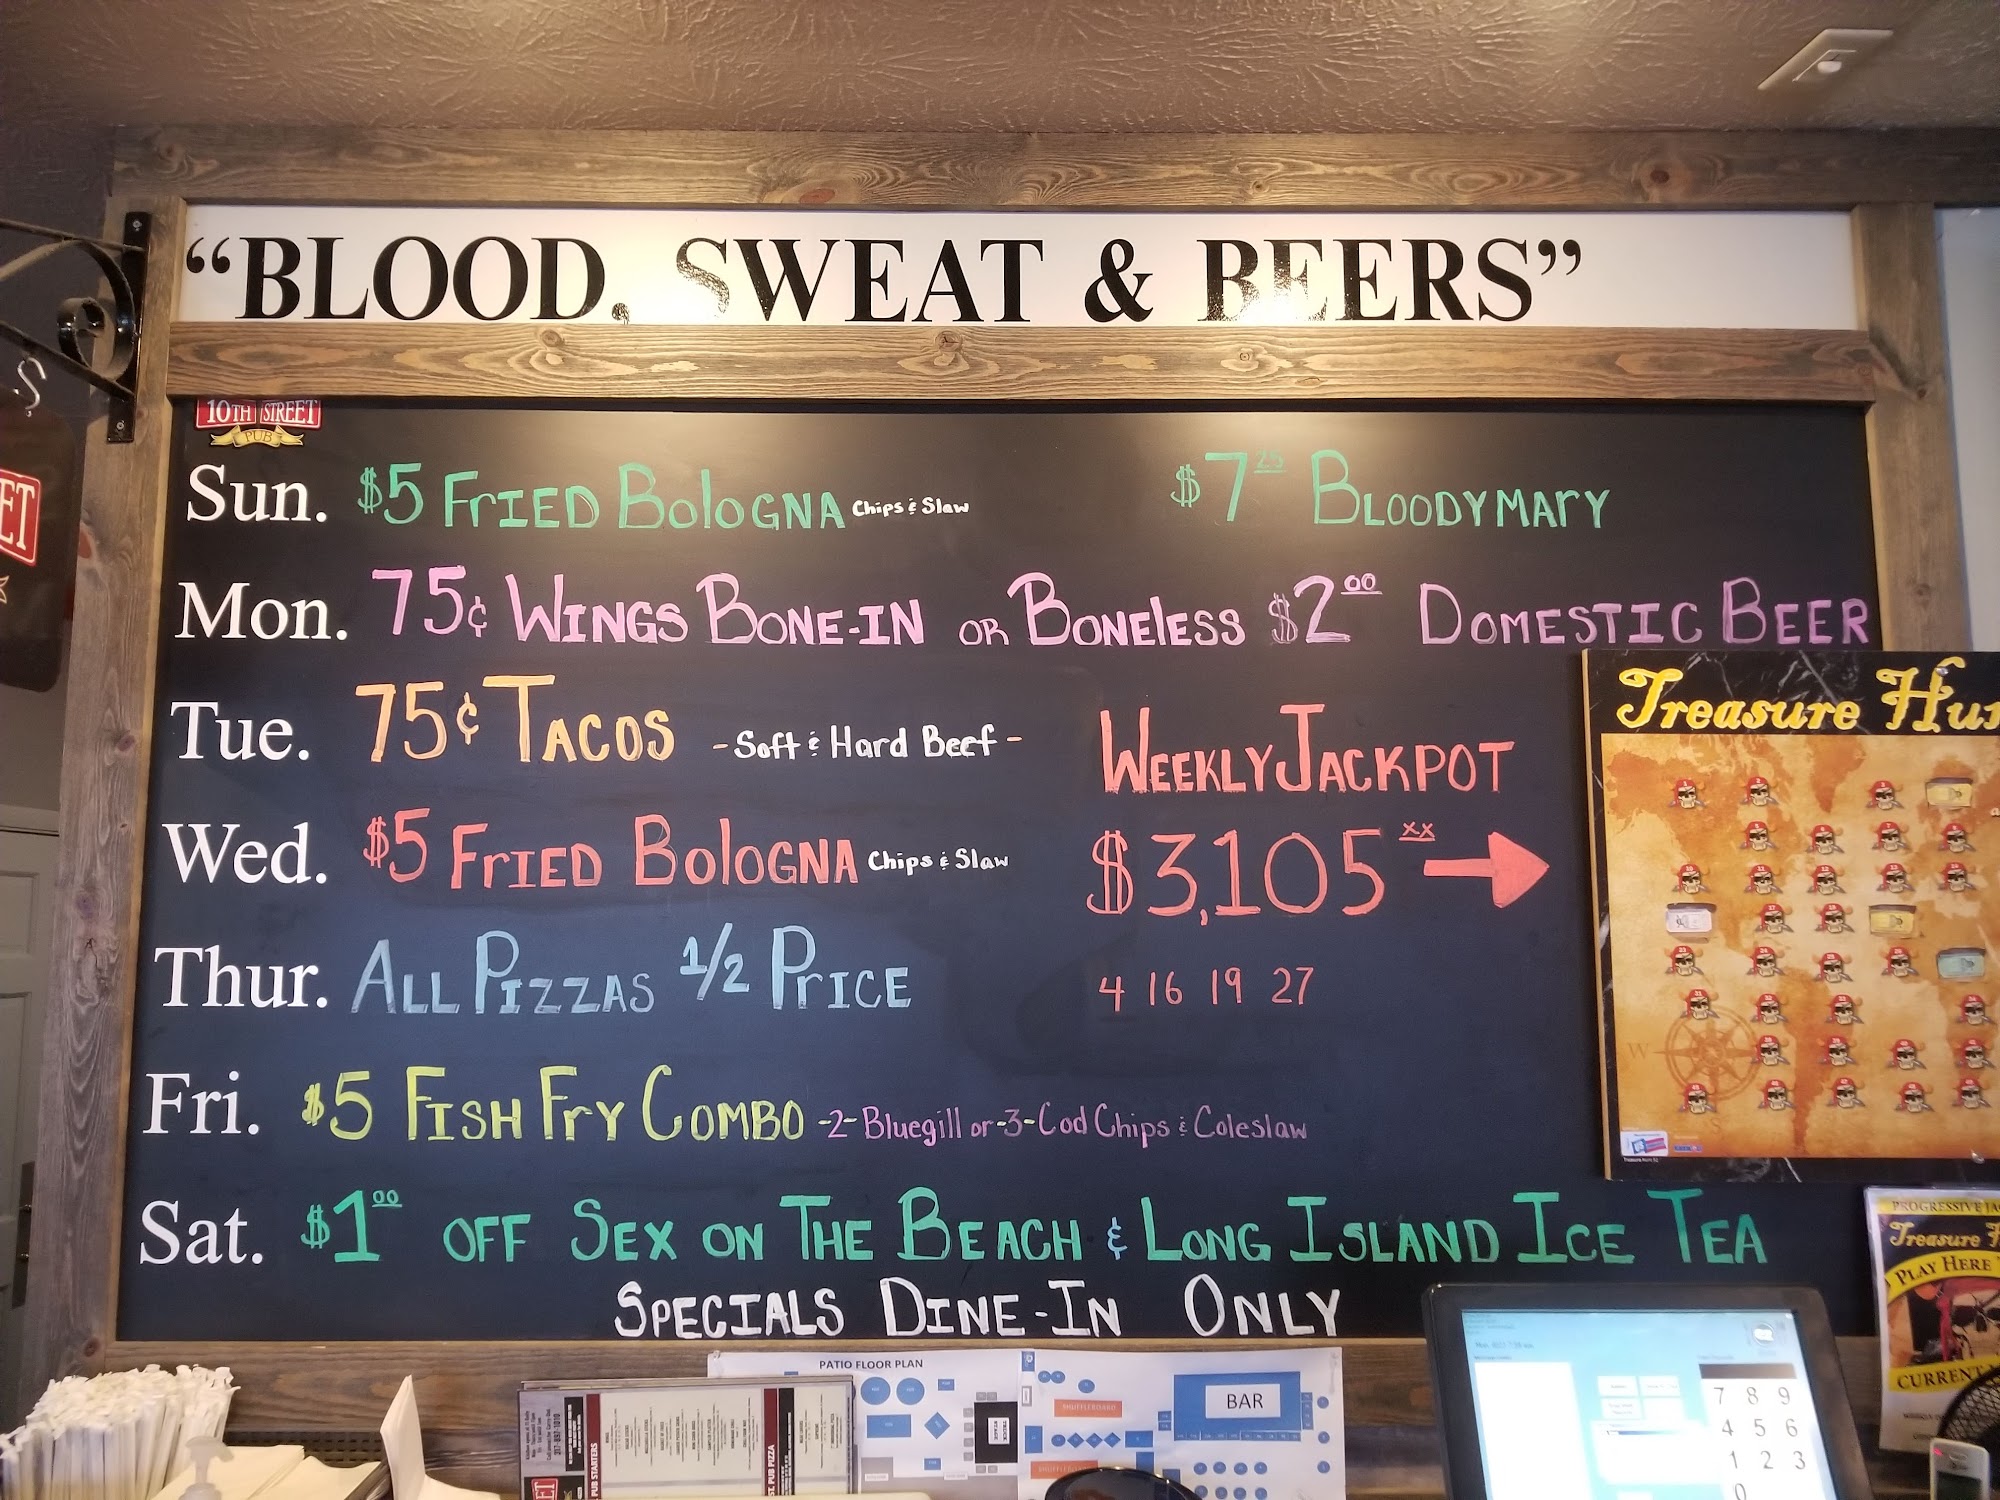 "BLOOD, SWEAT & BEERS"
10TH STREET
PUB
Sun. $5 FRIED BOLOGNA Chips & Slaw $7 25 BLOODYMARY
Mon. 75¢ WINGS BONE-IN OR BONELESS $2 00 DOMESTIC BEER
Tue. 75¢ TACOS - Soft & Hard Beef -
WEEKLY JACKPOT
Wed. $5 FRIED BOLOGNA Chips & Slaw
$3,105 xx
Thur. ALL PIZZAS 1/2 PRICE
4 16 19 27
Fri. $5 FISH FRY COMBO -2- Bluegill or -3- Cod Chips & Coleslaw
Sat. $1 00 OFF SEX ON THE BEACH & LONG ISLAND ICE TEA
SPECIALS DINE-IN ONLY
ET
Treasure Hun
W
PROGRESSIVE JA
Treasure
PLAY HERE
CURRENT
PATIO FLOOR PLAN
BAR
SHUFFLEBOARD
SHUFFLEBOA
PUB STARTERS
PUB PIZZA
317-897-1010
ET
7 8 9
4 5 6
1 2 3
0